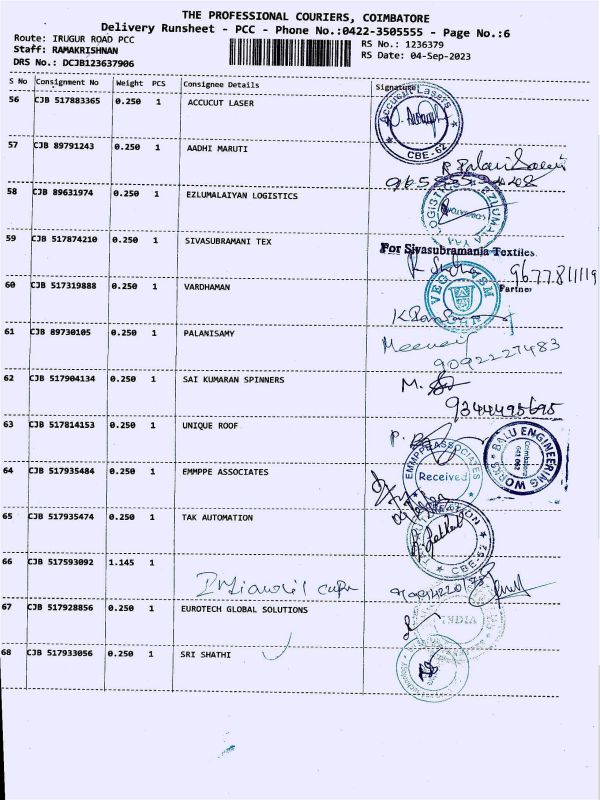 THE PROFESSIONAL COURIERS, COIMBATORE
Delivery Runsheet - PCC - Phone No.:0422-3505555 - Page No.:6
Route: IRUGUR ROAD PCC
RS No.: 1236379
Staff: RAMAKRISHNAN
RS Date: 04-Sep-2023
DRS No.: DCJB123637906
S No Consignment No Weight PCS Consignee Details Signature
56 CJB 517883365 0.250 1 ACCUCUT LASER
Accucut Lasers
CBE-62
57 CJB 89791243 0.250 1 AADHI MARUTI
58 CJB 89631974 0.250 1 EZLUMALAIYAN LOGISTICS
59 CJB 517874210 0.250 1 SIVASUBRAMANI TEX
For Sivasubramania Textiles
9677811119
Partner
60 CJB 517319888 0.250 1 VARDHAMAN
61 CJB 89730105 0.250 1 PALANISAMY
9092227483
62 CJB 517904134 0.250 1 SAI KUMARAN SPINNERS
M.
9344495695
63 CJB 517814153 0.250 1 UNIQUE ROOF
P.
BALU ENGINEERING WORKS
64 CJB 517935484 0.250 1 EMMPPE ASSOCIATES
EMMPPE ASSOCIATES
Received
65 CJB 517935474 0.250 1 TAK AUTOMATION
CBE-62
66 CJB 517593092 1.145 1
67 CJB 517928856 0.250 1 EUROTECH GLOBAL SOLUTIONS
INDIA
68 CJB 517933056 0.250 1 SRI SHATHI